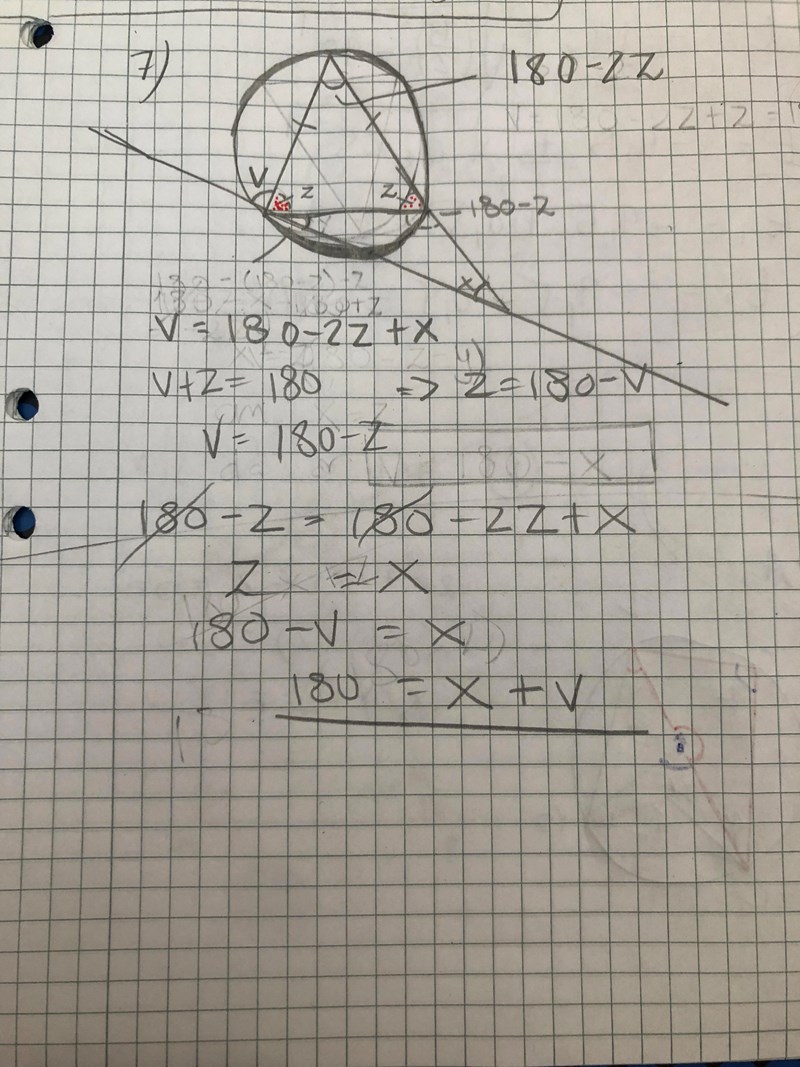 7)
180-2Z
V
z
z
180-z
x
V = 180-2Z+X
V+Z= 180 => Z=180-V
V= 180-Z
180-Z = 180-2Z+X
Z = X
180-V = X
180 = X+V